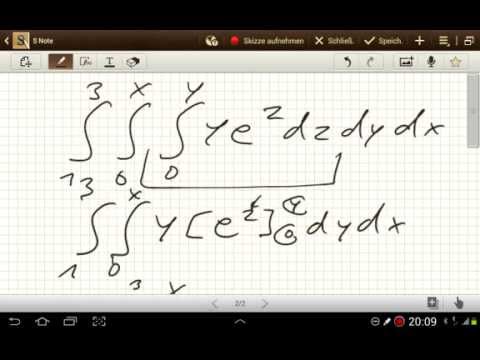 S Note
Skizze aufnehmen
Schließ.
Speich.
3 x y
∫ ∫ ∫ y e^z dz dy dx
1 0 0
3 x
∫ ∫ y [e^z]_0^y dy dx
1 0
3 x
2/2
20:09